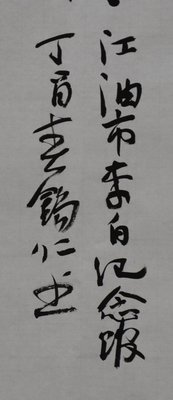 江油市李白纪念馆
丁酉春锡仁书